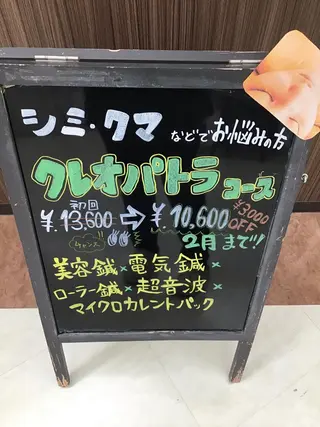 シミ・クマ などでお悩みの方
クレオパトラコース
初回
¥.13,600 ⇨ ¥10,600 ¥3000 OFF
チャンス
2月まで!!
美容鍼×電気鍼×
ローラー鍼×超音波×
マイクロカレントパック